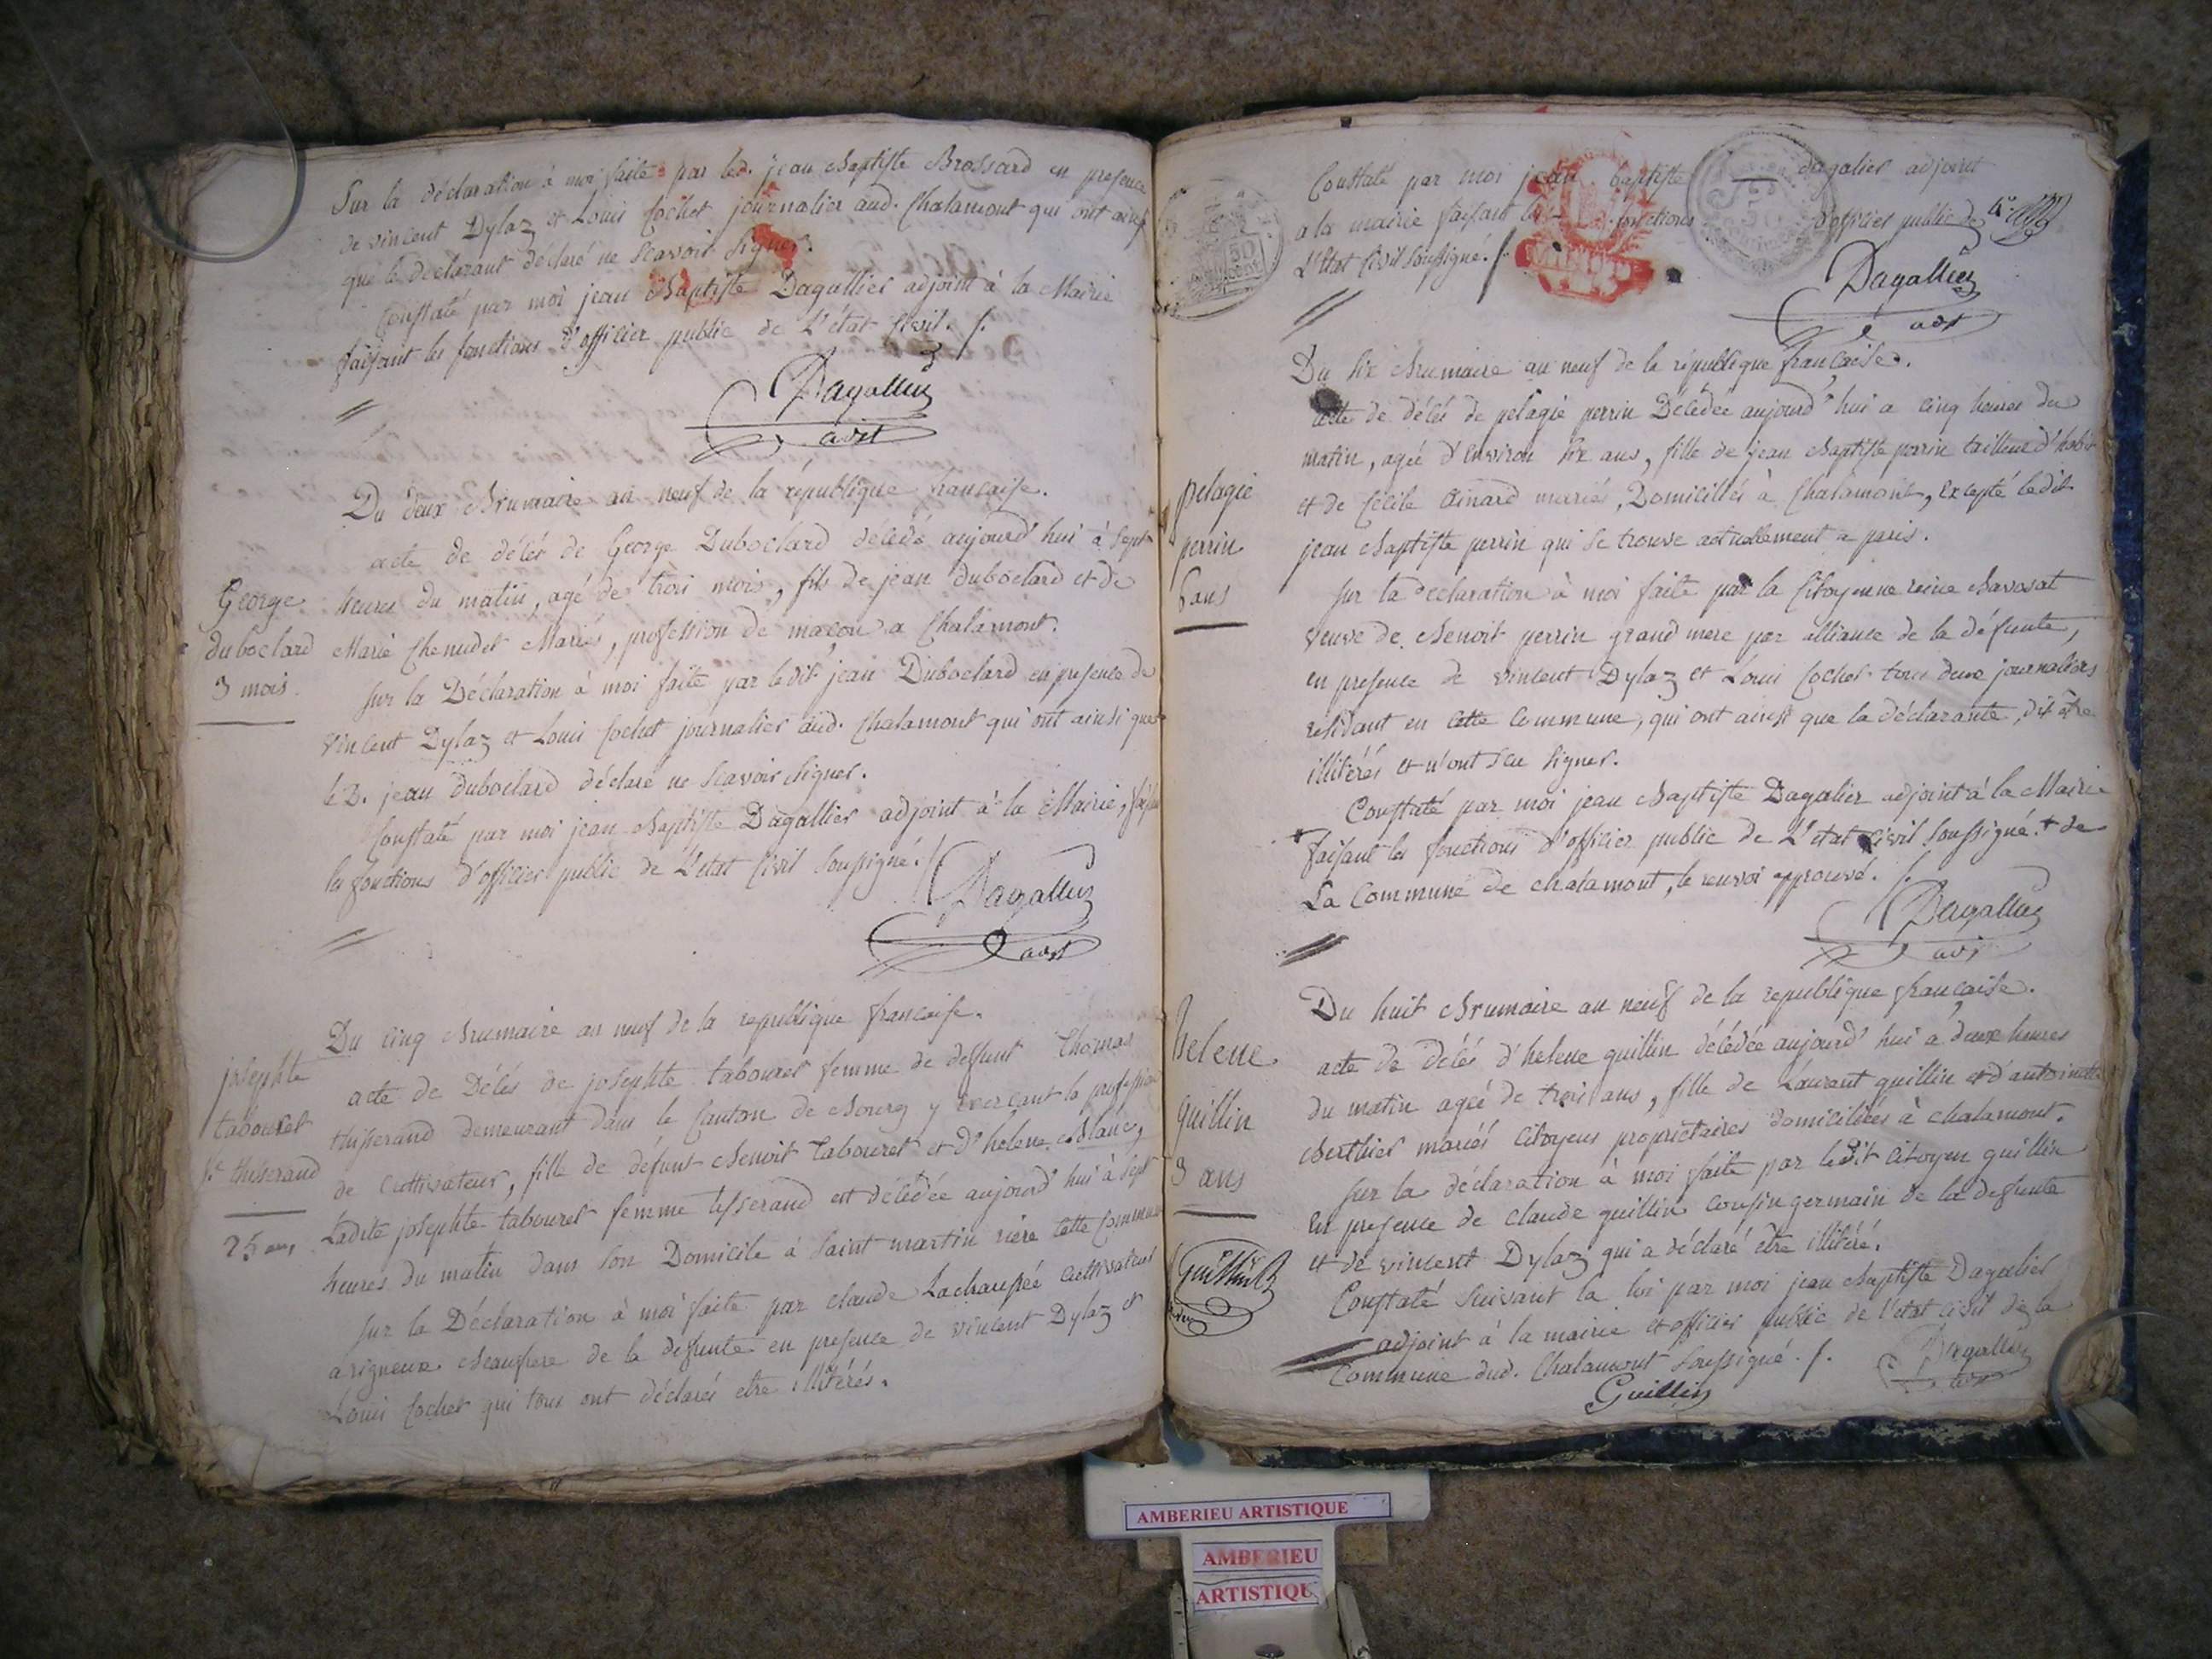 Sur la déclaration à moi faite par led. jean Baptiste Brossard en presence
de vincent Dylaz et Louis Cochet journalier aud. Chalamont qui ont ainsi
que le déclarant déclaré ne scavoir signer.
Constaté par moi jean Baptiste Dagallier adjoint à la Mairie
faisant les fonctions d'officier public de L'état Civil. /.
Dagallier
adjt
Du deux Brumaire an neuf de la république francaise.
acte de décés de George Duboclard décédé aujourd'hui à sept
George
duboclard
3 mois
heures du matin, agé de trois mois, fils de jean duboclard et de
Marie Chenudet Mariés, profession de macon a Chalamont.
sur la Déclaration à moi faite par ledit jean Duboclard en presence de
vincent Dylaz et Louis Cochet journalier aud. Chalamont qui ont ainsi que
le D. jean duboclard déclaré ne scavoir signer.
Constaté par moi jean Baptiste Dagallier adjoint à la Mairie,
les fonctions d'officier public de L'état Civil soussigné. /.
Dagallier
adjt
Du cinq Brumaire an neuf de la republique francaise.
josephte
tabouret
thisserand
25 ans
acte de Décés de josephte tabouret femme de deffunt Thomas
thisserand demeurant dans le Canton de Bourg y exercant la profession
de cultivateur, fille de défunt Benoit Tabouret et d'helene Blanc,
Ladite josephte tabouret femme tisserand est décédée aujourd'hui à sept
heures du matin dans son Domicile à saint martin riere cette Commune
sur la Déclaration à moi faite par claude Lachaussée cultivateur
a rigneux Beaufrere de la defunte en presence de vincent Dylaz et
Louis Cochet qui tous ont déclarés etre illitérés.
Constaté par moi jean baptiste dagalier adjoint
a la mairie faisant les fonctions d'officier public de
L'état Civil soussigné. /.
Dagallier
adjt
Du six Brumaire an neuf de la république francaise.
pelagie
perrin
6 ans
acte de décés de pelagie perrin Décédée aujourd'hui a cinq heures du
matin, agée d'environ six ans, fille de jean Baptiste perrin tailleur d'habit
et de Cécile Ainard mariés, Domiciliés à Chalamont, excepté ledit
jean Baptiste perrin qui se trouve actuellement a paris.
sur la declaration à moi faite par la Citoyenne reine Bavosat
veuve de Benoit perrin grand mere par alliance de la défunte,
en presence de vincent Dylaz et Louis Cochet tous deux journaliers
residant en cette Commune, qui ont ainsi que la déclarante, dit etre
illitérés et n'ont scu signer.
Constaté par moi jean Baptiste Dagalier adjoint à la Mairie
faisant les fonctions d'officier public de L'etat Civil soussigné. + de
La Commune de chalamont, le renvoi approuvé. /.
Dagallier
adjt
Du huit Brumaire an neuf de la republique francaise.
helene
guillin
3 ans
acte de décés d'helene guillin décédée aujourd'hui a deux heures
du matin agée de trois ans, fille de Laurent guillin et d'antoinette
Berthier mariés citoyens propriétaires domiciliés à chalamont.
sur la déclaration à moi faite par ledit citoyen guillin
en presence de claude guillin cousin germain de la defunte
et de vincent Dylaz qui a déclaré etre illitéré.
Constaté suivant la loi par moi jean Baptiste Dagalier
adjoint à la mairie et officier public de l'etat civil de la
Commune dud. Chalamont soussigné. /.
Guillin
Guillin
Dagallier
adjt
AMBERIEU ARTISTIQUE
AMBERIEU
ARTISTIQU